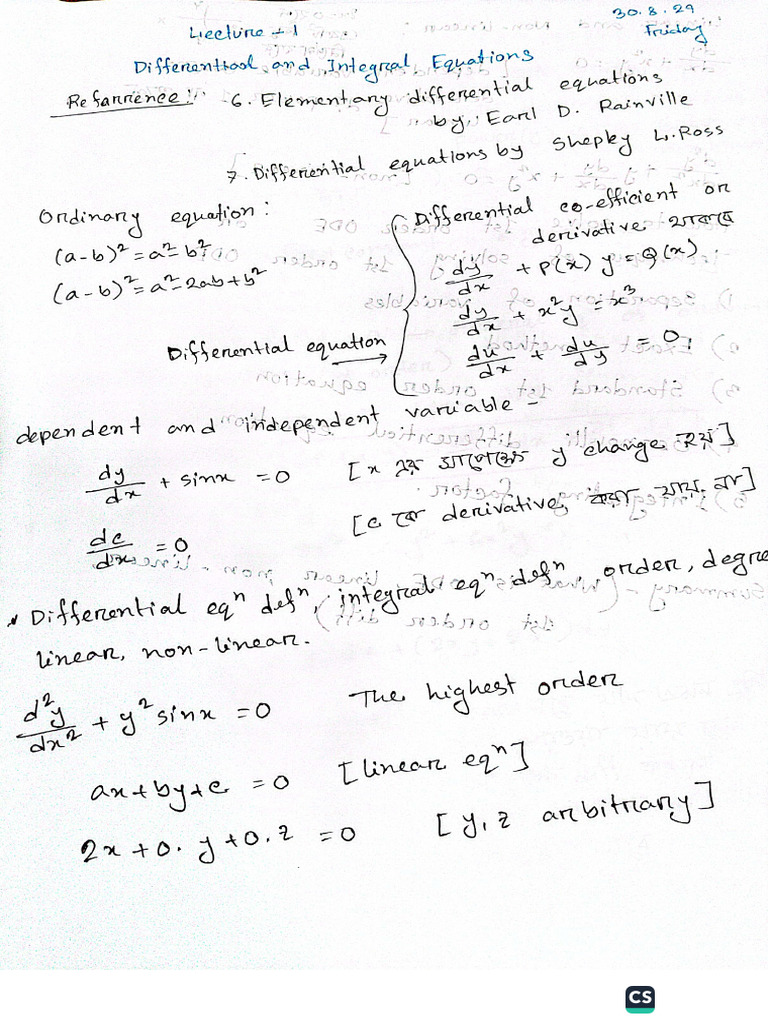 Lecture - 1
30.8.24
Friday
Differenttool and Integral Equations
Refarrence:- 6. Elementary differential equations
by: Earl D. Rainville
7. Differential equations by Shepley L. Ross
Ordinary equation:
(a-b)² = a² - b²
(a-b)² = a² - 2ab + b²
Differential equation →
Differential co-efficient or
derivative থাকবে
dy/dx + P(x) y = Q(x)
dy/dx + x²y = x³
du/dx + du/dy = 0,
dependent and independent variable -
dy/dx + sinx = 0 [x এর সাপেক্ষে y change হয়]
dc/dx = 0 [c কে derivative, করা যায় না]
Differential eqⁿ defⁿ, integral eqⁿ defⁿ, order, degree
linear, non-linear.
d²y/dx² + y² sinx = 0 The highest order
ax + by + c = 0 [linear eqⁿ]
2x + 0. y + 0. z = 0 [y, z arbitrary]
CS